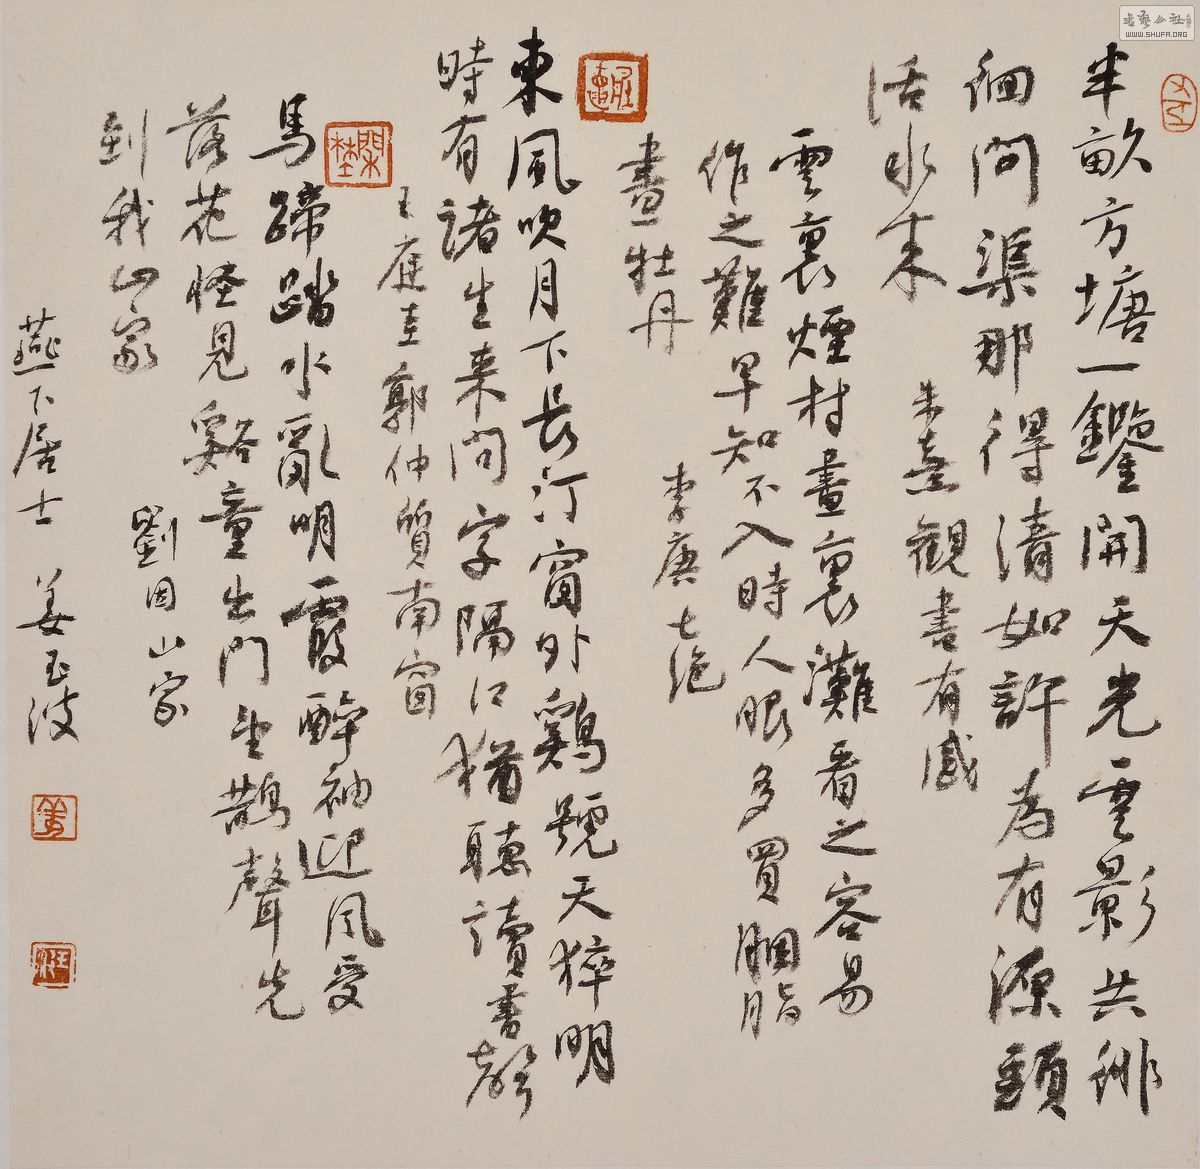 半畝方塘一鑒開天光雲影共徘
徊問渠那得清如許為有源頭
活水来
朱熹觀書有感
雲裏煙村畫裏灘看之容易
作之難早知不入時人眼多買胭脂
畫牡丹
李唐七绝
東風吹月下長汀窗外鷄號天猝明
時有諸生来問字隔江猶聽讀書聲
王庭珪郭仲質南窗
馬蹄踏水亂明霞醉袖迎風受
落花怪見谿童出門望鵲聲先
到我山家
劉因山家
燕下居士 姜玉波
書藝公社
WWW.SHUFA.ORG